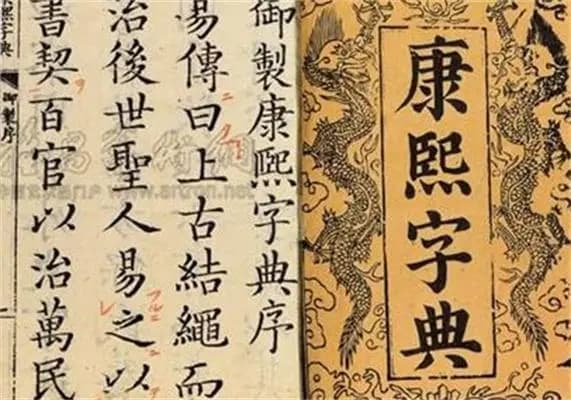 康熙字典
御製康熙字典序
易傳曰上古結繩而
治後世聖人易之以
書契百官以治萬民
熙字典
御製序
www.artron.net